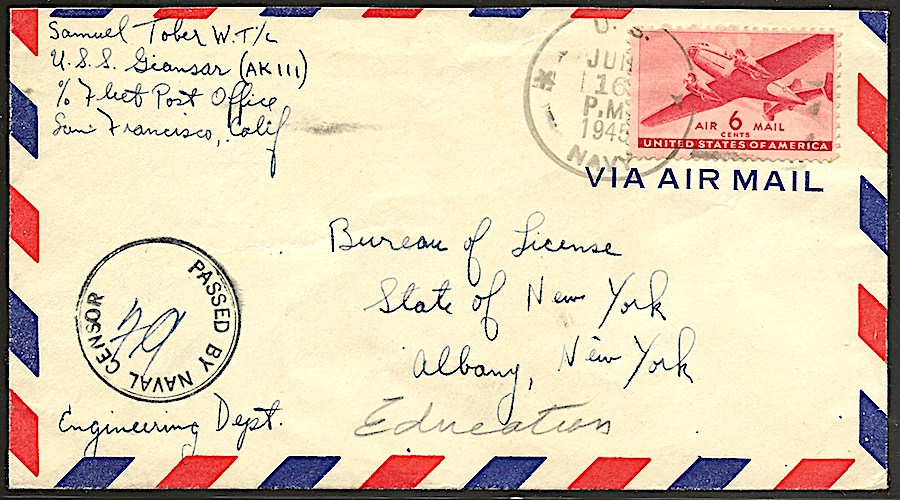 Samuel Tober W.T/c
U.S.S. Giansar (AK111)
℅ Fleet Post Office
San Francisco, Calif
U. S.
JUN
16
P.M.
1945
NAVY
AIR 6 MAIL
CENTS
UNITED STATES OF AMERICA
VIA AIR MAIL
Bureau of License
State of New York
Albany, New York
Education
PASSED BY NAVAL CENSOR
Engineering Dept.